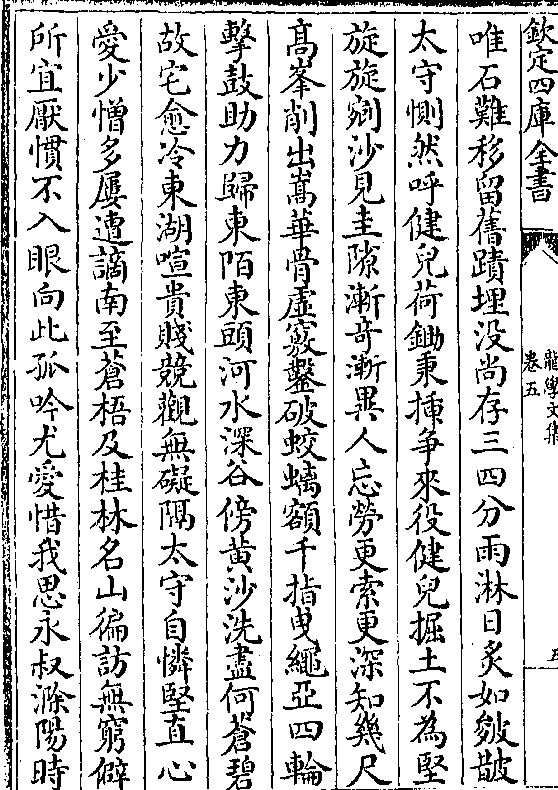 欽定四庫全書
龍學文集
卷五
五
唯石難移留舊蹟埋没尚存三四分雨淋日炙如皴皵
太守惻然呼健兒荷鋤秉揷争來役健兒掘土不為堅
旋旋剜沙見圭隙漸竒漸異人忘勞更索更深知幾尺
髙峯削出嵩華骨虚竅鑿破蛟螭額千指曳繩亞四輪
擊鼓助力歸東陌東頭河水深谷傍黄沙洗盡何蒼碧
故宅愈冷東湖喧貴賤競觀無礙隔太守自憐堅直心
愛少憎多屢遭謫南至蒼梧及桂林名山徧訪無窮僻
所宜厭慣不入眼向此孤吟尤愛惜我思永叔滁陽時